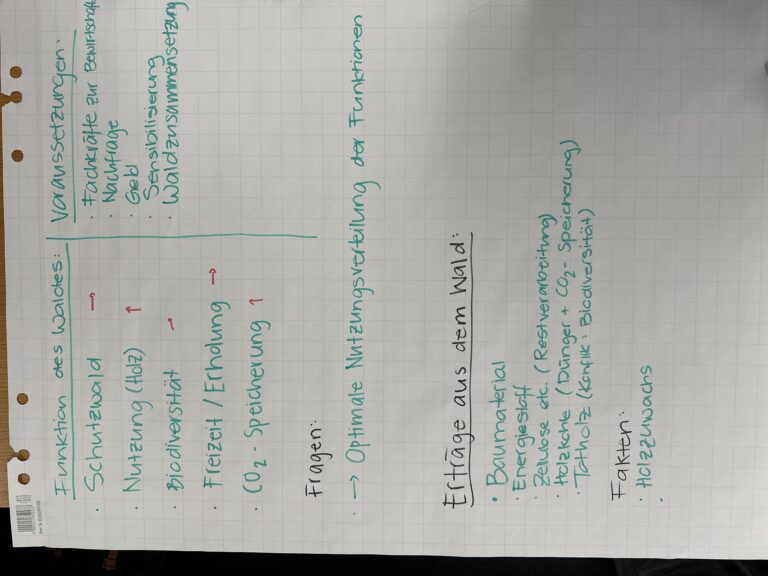 Funktion des Waldes:
· Schutzwald →
· Nutzung (Holz) ↑
· Biodiversität →
· Freizeit / Erholung →
· CO₂ - Speicherung ↑
Voraussetzungen:
· Fachkräfte zur
· Nachfrage
· Geld
· Sensibilisierung
· Waldzusammensetzung
Fragen:
· → Optimale Nutzungsverteilung der Funktionen
Erträge aus dem Wald:
• Baumaterial
· Energiestoff
· Zellulose etc. (Restverarbeitung)
· Holzkohle (Dünger + CO₂ - Speicherung)
· Totholz (Konflik: Biodiversität)
Fakten:
· Holzzuwachs
·